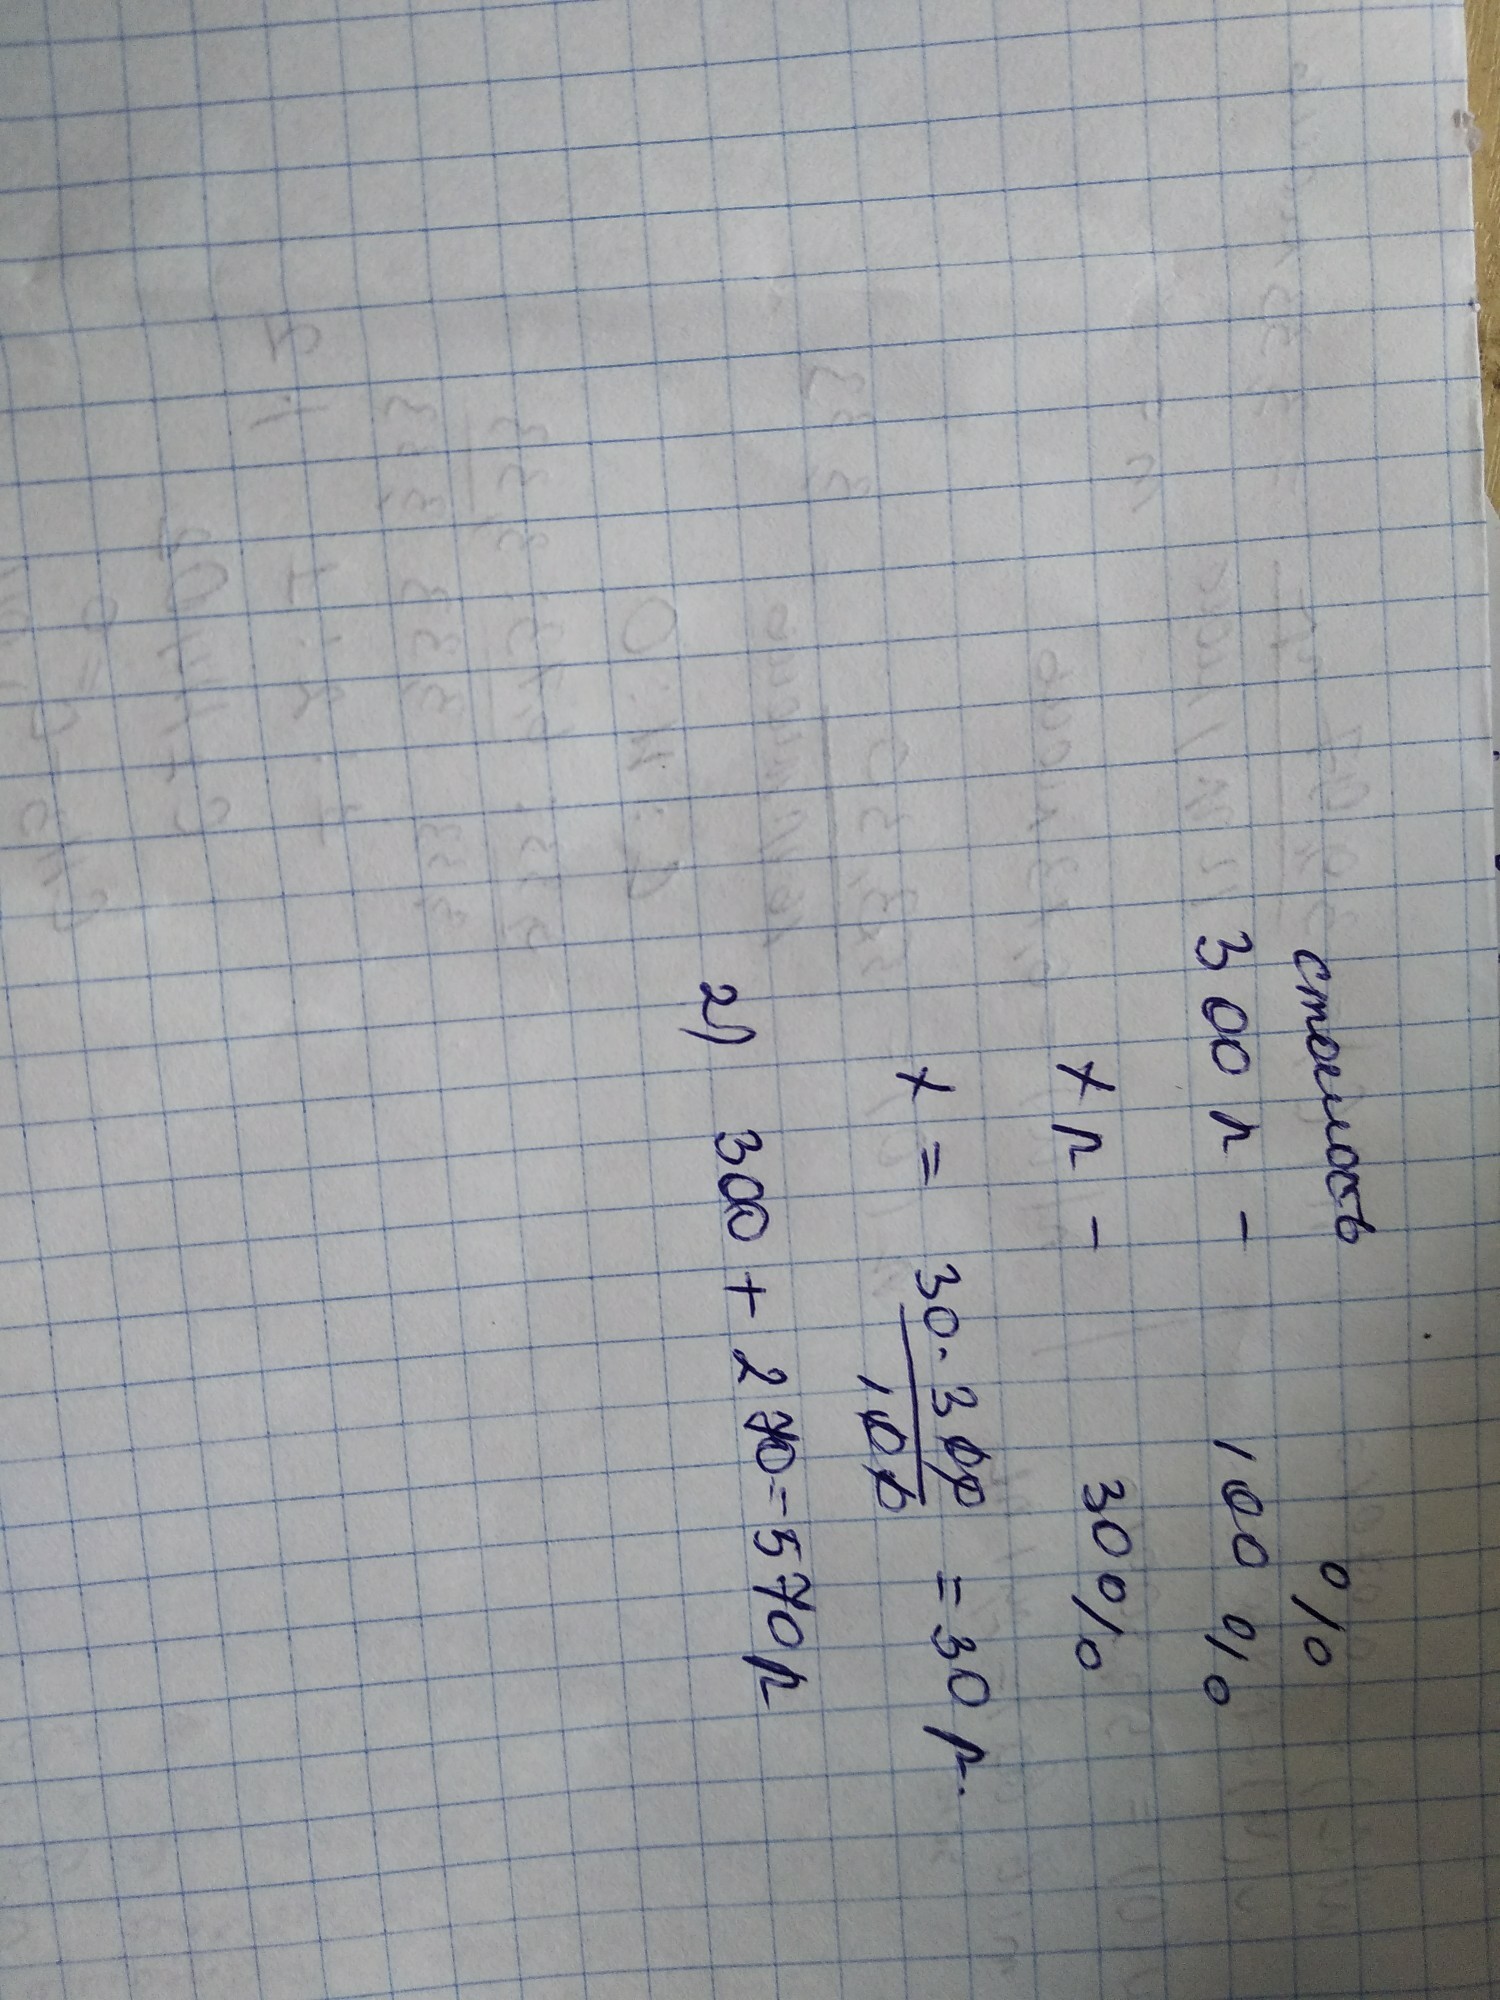 стоимость %
300 р - 100 %
х р - 30%
х = 30 · 300 / 100 = 30 р.
2) 300 + 270 = 570 р